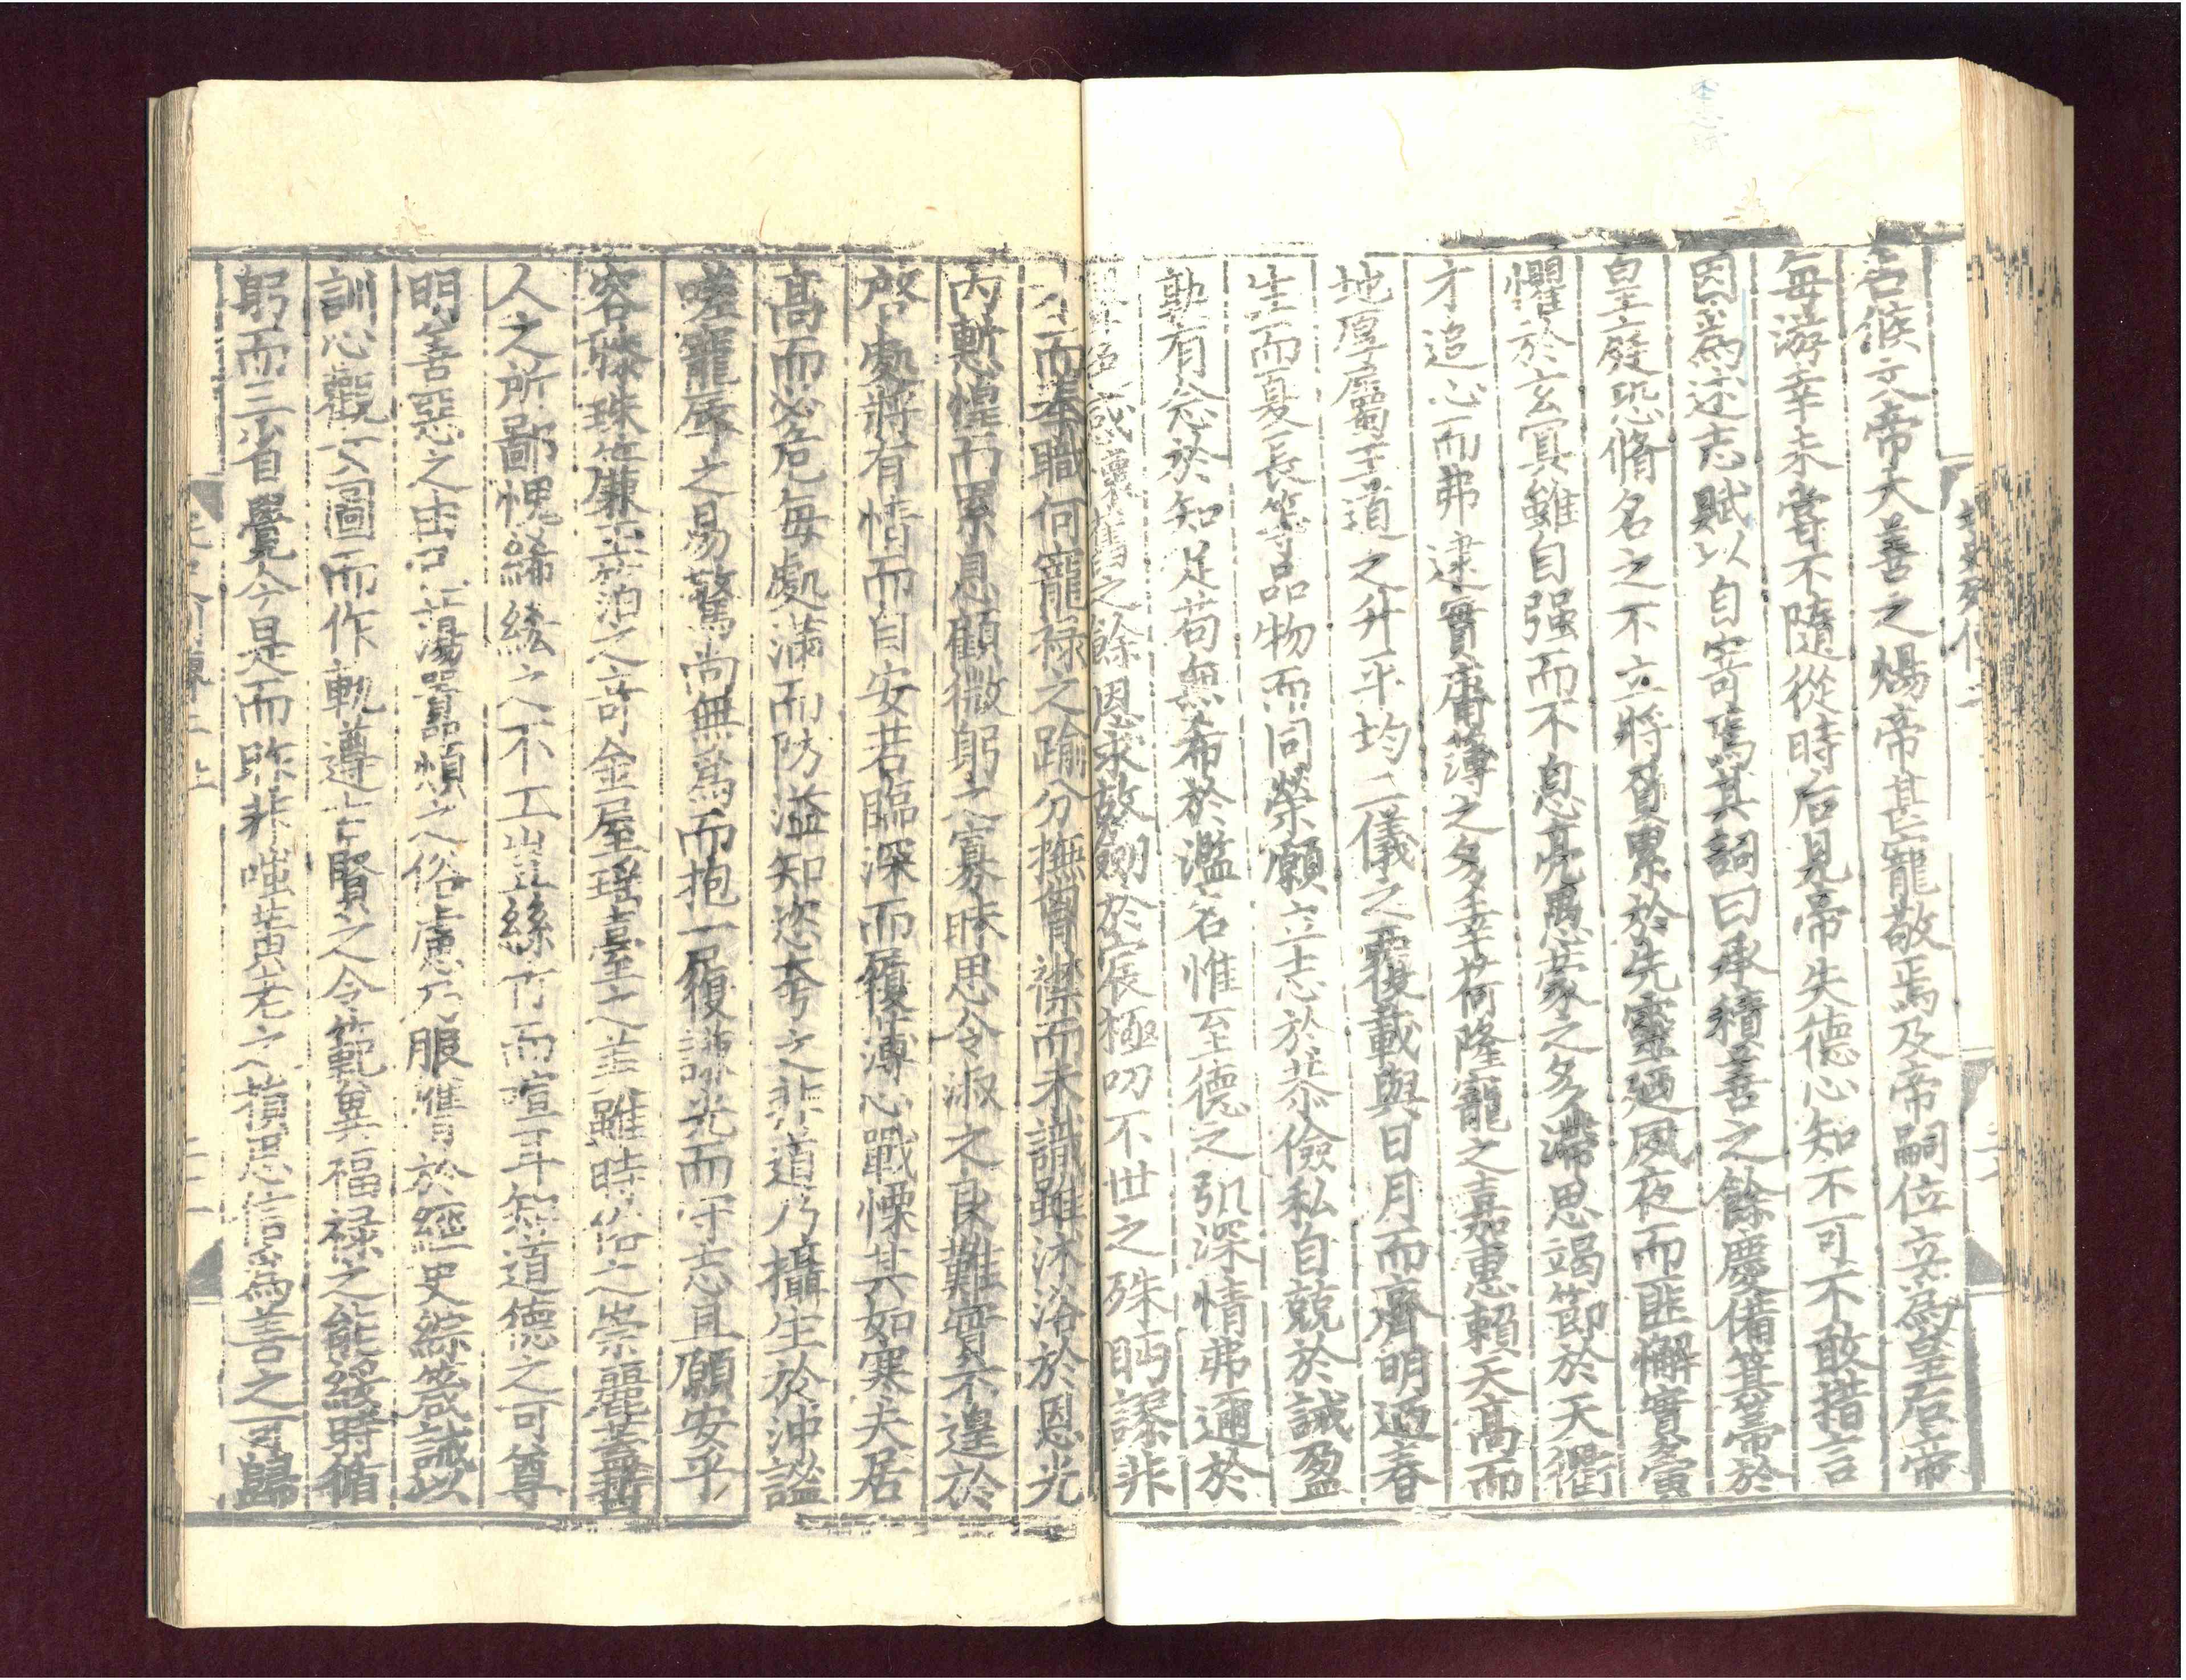 北史列傳二
占候文帝大善之煬帝甚寵敬焉及帝嗣位立為皇后帝
每游幸未嘗不隨從時后見帝失德心知不可不敢措言
因為述志賦以自寄焉其詞曰承積善之餘慶備箕帚於
皇庭恐脩名之不立將負累於先靈廼夙夜而匪懈實寅
懼於玄冥雖自强而不息亮愚蒙之多滯思竭節於天衢
才追心而弗逮實庸薄之多幸荷隆寵之嘉惠賴天高而
地厚屬王道之升平均二儀之覆載與日月而齊明迺春
生而夏長等品物而同榮願立志於恭儉私自兢於誡盈
孰有念於知足苟無希於濫名惟至德之弘深情弗邇於
聲色感懷舊之餘恩求故劍於宸極叨不世之殊眄謬非
才而奉職何寵祿之踰分撫胷襟而未識雖沐浴於恩光
內慙惶而累息顧微躬之寡昧思令淑之良難實不遑於
啓處將有情而自安若臨深而履薄心戰慄其如寒夫居
高而必危每處滿而防溢知恣夸之非道乃攝生於沖謐
嗟寵辱之易驚尚無爲而抱一履謙光而守志且願安乎
容膝珠簾玉箔之奇金屋瑤臺之美雖時俗之崇麗蓋哲
人之所鄙愧絺綌之不工豈絲竹而喧耳知道德之可尊
明善惡之由己蕩囂煩之俗慮乃服膺於經史綜箴誡以
訓心觀女圖而作軌遵古賢之令範冀福祿之能綏時循
躬而三省覺今是而昨非嗤黃老之損思信為善之可歸